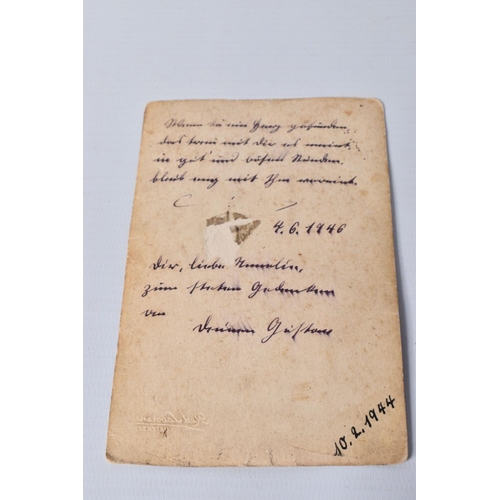 Wenn du ein Herz gefunden
das treu mit dir es meint,
in gut' und bösen Stunden
bleib eng mit Ihm vereint.
4.6.1946
Dir, liebe
zum steten Gedenken
an
Deinen Gustav
10.2.1944